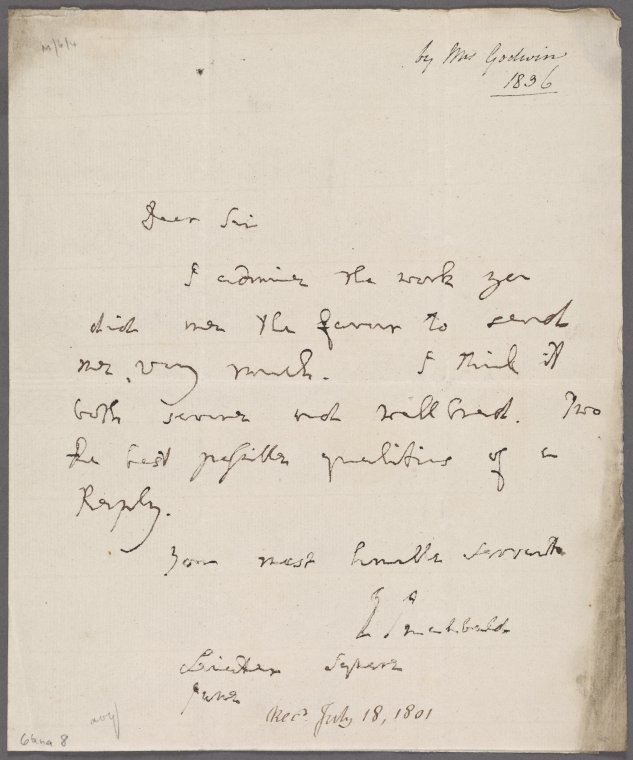 M/6/4
by Mrs Godwin
1836
Dear Sir
I admire the work you
did me the favour to send
me, very much. I think it
both severe and well bred. Two
the best possible qualities of a
Reply.
Your most humble Servant
E Inchbald
Leicester Square
June
Rec'd July 18, 1801